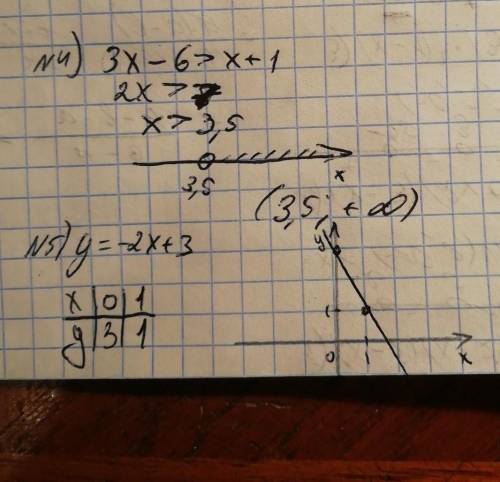 N4) 3x-6>x+1
2x>7
x>3,5
3,5 x
(3,5; +∞)
N5) y=-2x+3
x 0 1
y 3 1
y
1
0 1 x